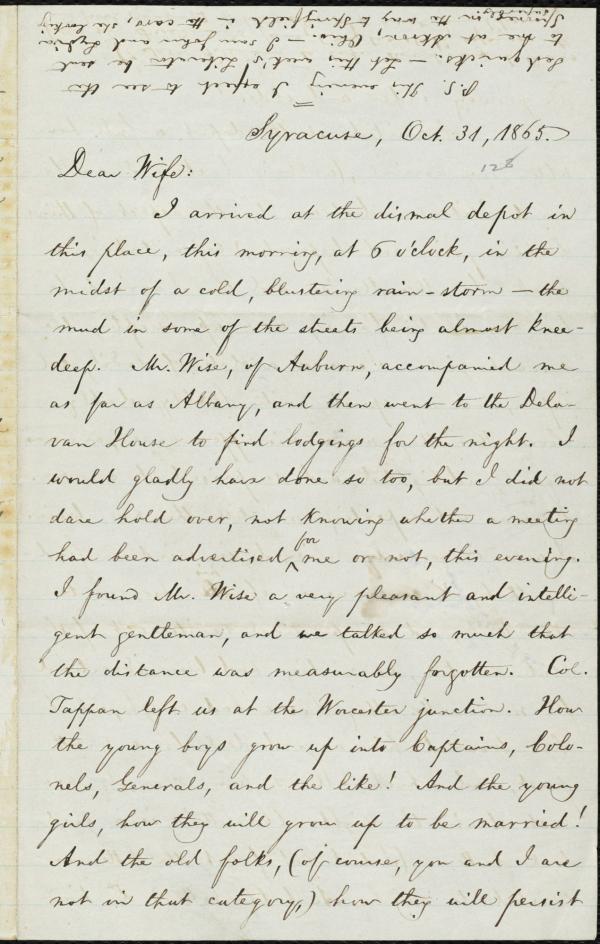 Syracuse, Oct. 31, 1865.
128
Dear Wife:
I arrived at the dismal depot in
this place, this morning, at 6 o'clock, in the
midst of a cold, blustering rain-storm — the
mud in some of the streets being almost knee-
deep. Mr. Wise, of Auburn, accompanied me
as far as Albany, and then went to the Dela-
van House to find lodgings for the night. I
would gladly have done so too, but I did not
dare hold over, not knowing whether a meeting
had been advertised for me or not, this evening.
I found Mr. Wise a very pleasant and intelli-
gent gentleman, and we talked so much that
the distance was measurably forgotten. Col.
Tappan left us at the Worcester junction. How
the young boys grow up into Captains, Colo-
nels, Generals, and the like! And the young
girls, how they will grow up to be married!
And the old folks, (of course, you and I are
not in that category,) how they will persist
P.S. This evening I expect to see the
Sedgwicks. — Let this week's Liberator be sent
to me at Akron, Ohio. — I saw John and Lydia
Spring in the way to Springfield in the cars, she looking
superbly.